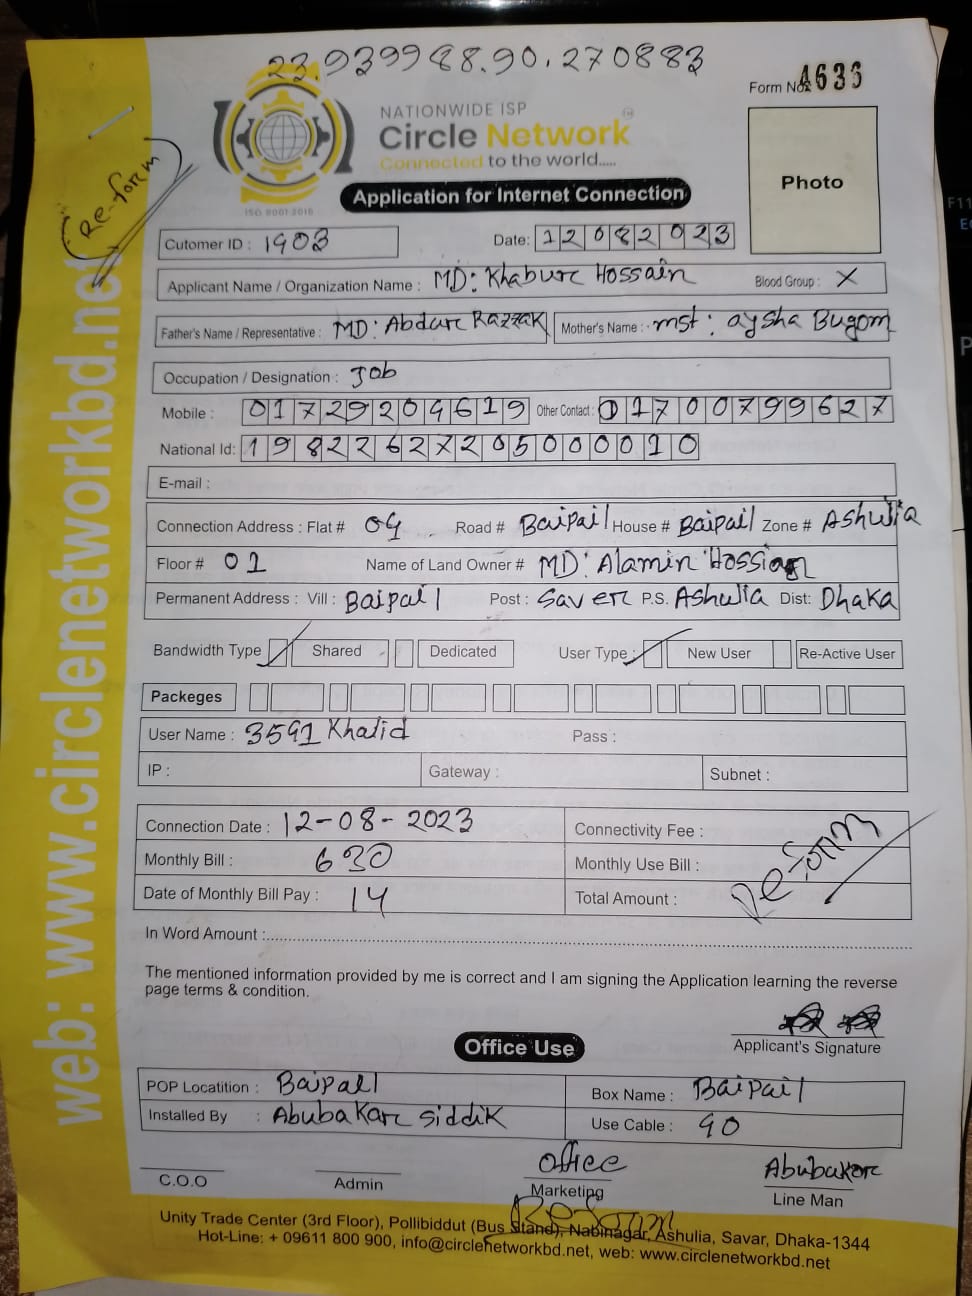 23.939988.90.270883
Form No: 4636
NATIONWIDE ISP
Circle Network
Connected to the world.....
ISO 9001:2015
(Re-form)
Photo
Application for Internet Connection
Cutomer ID : 1903 Date: 12082023
Applicant Name / Organization Name : MD: Khaburc Hossain Blood Group : X
Father's Name / Representative : MD: Abdurc Razzak Mother's Name : mst: aysha Bugom
Occupation / Designation : Job
Mobile : 01729204619 Other Contact : 01700799627
National Id: 19822627205000010
E-mail :
Connection Address : Flat # 04 Road # Baipail House # Baipail Zone # Ashulia
Floor # 01 Name of Land Owner # MD: Alamin Hossian
Permanent Address : Vill : Baipail Post : Saverc P.S. Ashulia Dist: Dhaka
Bandwidth Type Shared Dedicated User Type : New User Re-Active User
Packeges
User Name : 3591 Khalid Pass :
IP : Gateway : Subnet :
Connection Date : 12-08-2023 Connectivity Fee :
Monthly Bill : 630 Monthly Use Bill :
Date of Monthly Bill Pay : 14 Total Amount :
Re-form
In Word Amount :
The mentioned information provided by me is correct and I am signing the Application learning the reverse
page terms & condition.
Applicant's Signature
Office Use
POP Locatition : Baipail Box Name : Baipail
Installed By : Abubakarc Siddik Use Cable : 90
office Abubakorc
C.O.O Admin Marketing Line Man
Re-form
Unity Trade Center (3rd Floor), Pollibiddut (Bus Stand), Nabinagar, Ashulia, Savar, Dhaka-1344
Hot-Line: + 09611 800 900, info@circlenetworkbd.net, web: www.circlenetworkbd.net
web: www.circlenetworkbd.net